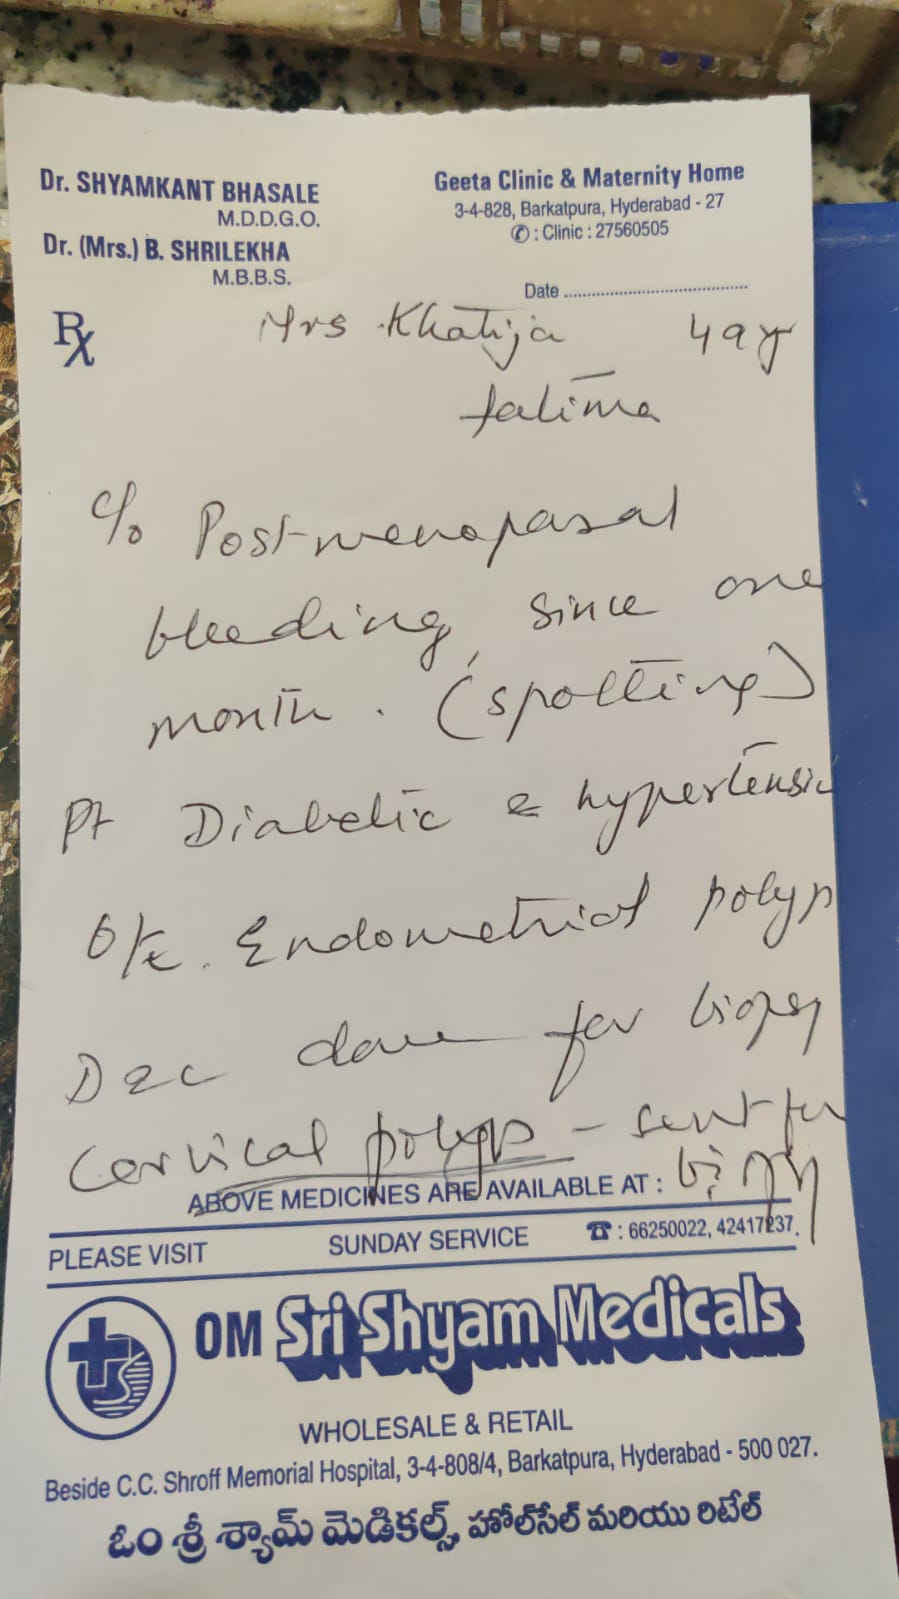 Dr. SHYAMKANT BHASALE
M.D.D.G.O.
Dr. (Mrs.) B. SHRILEKHA
M.B.B.S.
Geeta Clinic & Maternity Home
3-4-828, Barkatpura, Hyderabad - 27
✆ : Clinic : 27560505
Date ..........................................
Rx
Mrs Khatija 49 yr
fatima
c/o Post-menopasal
bleeding, since one
month. (spotting)
Pt Diabetic & hypertensic
O/E. Endometrial polyp
D&C done for biopsy
Cervical polyp - sent for
biopsy
ABOVE MEDICINES ARE AVAILABLE AT :
PLEASE VISIT SUNDAY SERVICE ☎ : 66250022, 42417237.
OM Sri Shyam Medicals
WHOLESALE & RETAIL
Beside C.C. Shroff Memorial Hospital, 3-4-808/4, Barkatpura, Hyderabad - 500 027.
ఓం శ్రీ శ్యామ్ మెడికల్స్, హోల్‌సేల్ మరియు రిటేల్